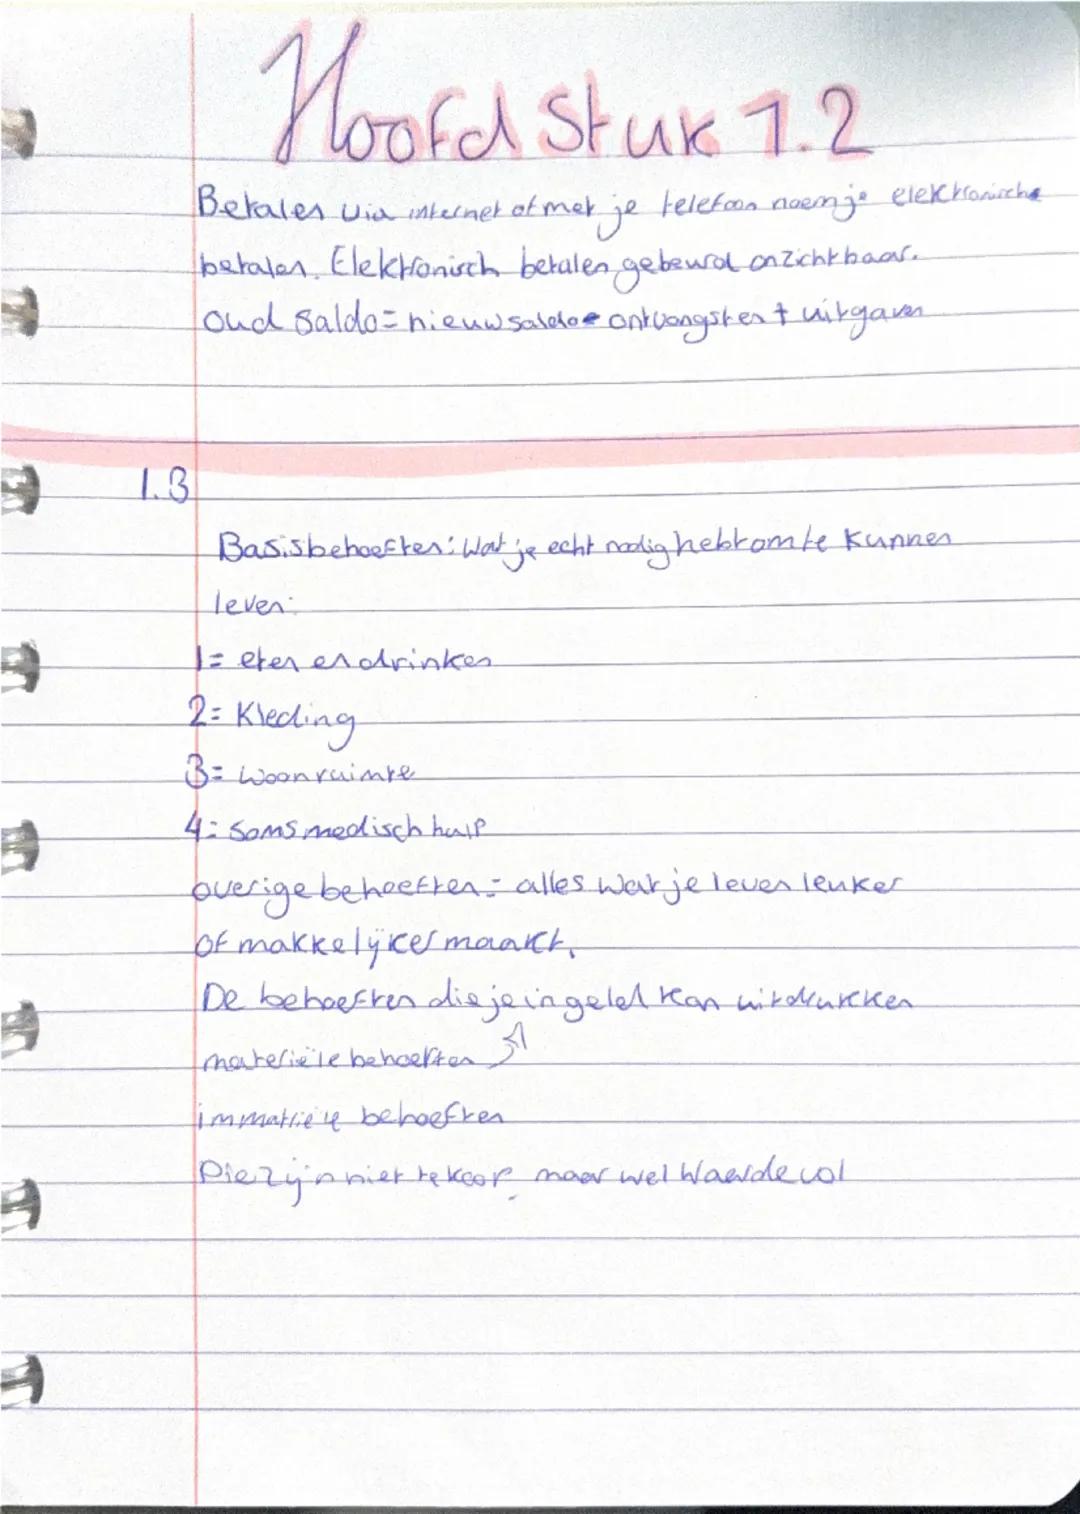 Hoofdstuk 1.2
Betalen via internet of met je telefoon noem je elektronische
betalen. Elektronisch betalen gebeurd onzichtbaar.
oud saldo = nieuw saldo - ontvangsten + uitgaven
1.3
Basisbehoeften: Wat je echt nodig hebt om te kunnen
leven:
1= eten en drinken
2= Kleding
3= woonruimte
4= soms medisch hulp
overige behoeften = alles wat je leven leuker
of makkelijker maakt.
De behoeften die je in geld kan uitdrukken
materiële behoeften
immatriële behoeften
Die zijn niet te koop maar wel Waardevol